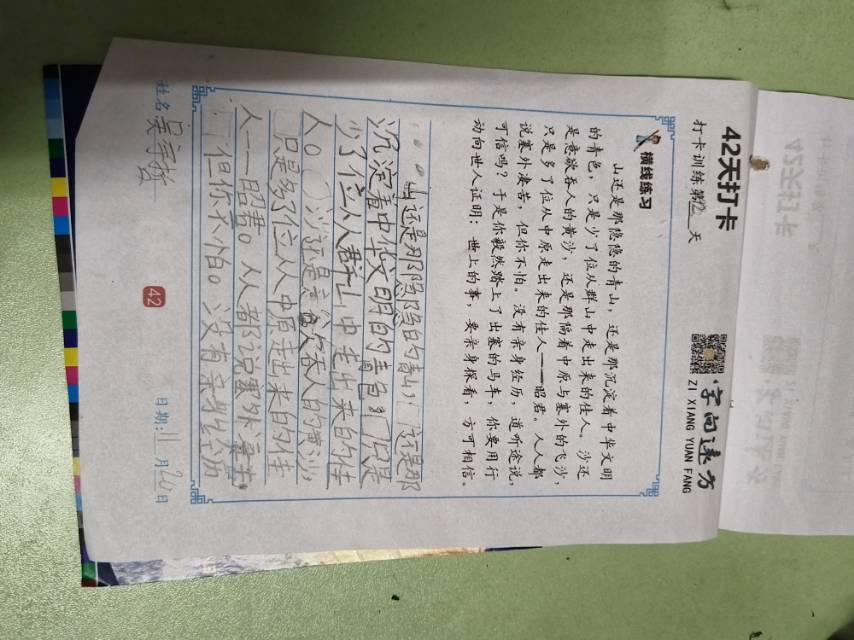 42天打卡
打卡训练第12天
字向远方
ZI XIANG YUAN FANG
横线练习
山还是那隐隐的青山，还是那沉淀着中华文明
的青色，只是少了位从群山中走出来的佳人。沙还
是意欲吞人的黄沙，还是那隔着中原与塞外的飞沙，
只是多了位从中原走出来的佳人——昭君。人人都
说塞外凄苦，但你不怕。没有亲身经历，道听途说，
可信吗？于是你毅然踏上了出塞的马车，你要用行
动向世人证明：世上的事，要亲身探看，方可相信。
山还是那隐隐的青山，还是那
沉淀着中华文明的青色，只是
少了位从群山中走出来的佳
人。沙还是意欲吞人的黄沙，
只是多了位从中原走出来的佳
人——昭君。人人都说塞外凄苦，
但你不怕。没有亲身经历
姓名
日期：11月20日
42